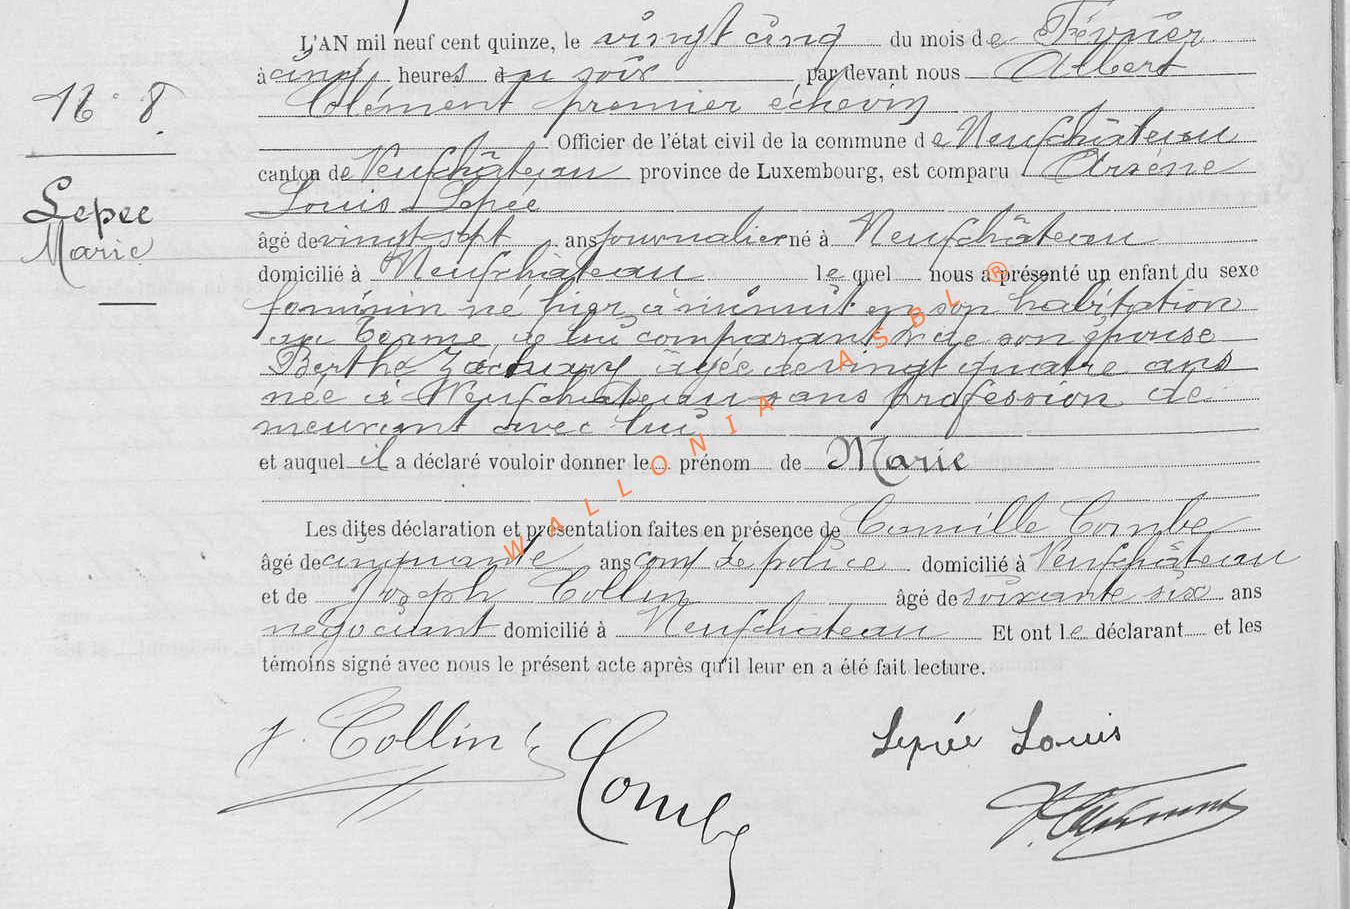 L'AN mil neuf cent quinze, le vingt cinq du mois de Février
à cinq heures du soir par devant nous Albert
Clément premier échevin
N° 8
Officier de l'état civil de la commune de Neufchâteau
canton de Neufchâteau province de Luxembourg, est comparu Arsène
Lepee
Louis Lepée
Marie
âgé de vingt sept ans journalier né à Neufchâteau
domicilié à Neufchâteau le quel nous a présenté un enfant du sexe
féminin né hier à minuit en son habitation
au Terme, de lui comparant & de son épouse
Berthe âgée de vingt quatre ans
née à Neufchâteau sans profession de
meurant avec lui
et auquel il a déclaré vouloir donner le prénom de Marie
Les dites déclaration et présentation faites en présence de Camille Combe
âgé de cinquante ans com de police domicilié à Neufchâteau
et de Joseph Collin âgé de soixante six ans
négociant domicilié à Neufchateau Et ont le déclarant et les
témoins signé avec nous le présent acte après qu'il leur en a été fait lecture.
J. Collin
Combe
Lepée Louis
Clément
WALLONIA ASBL ®